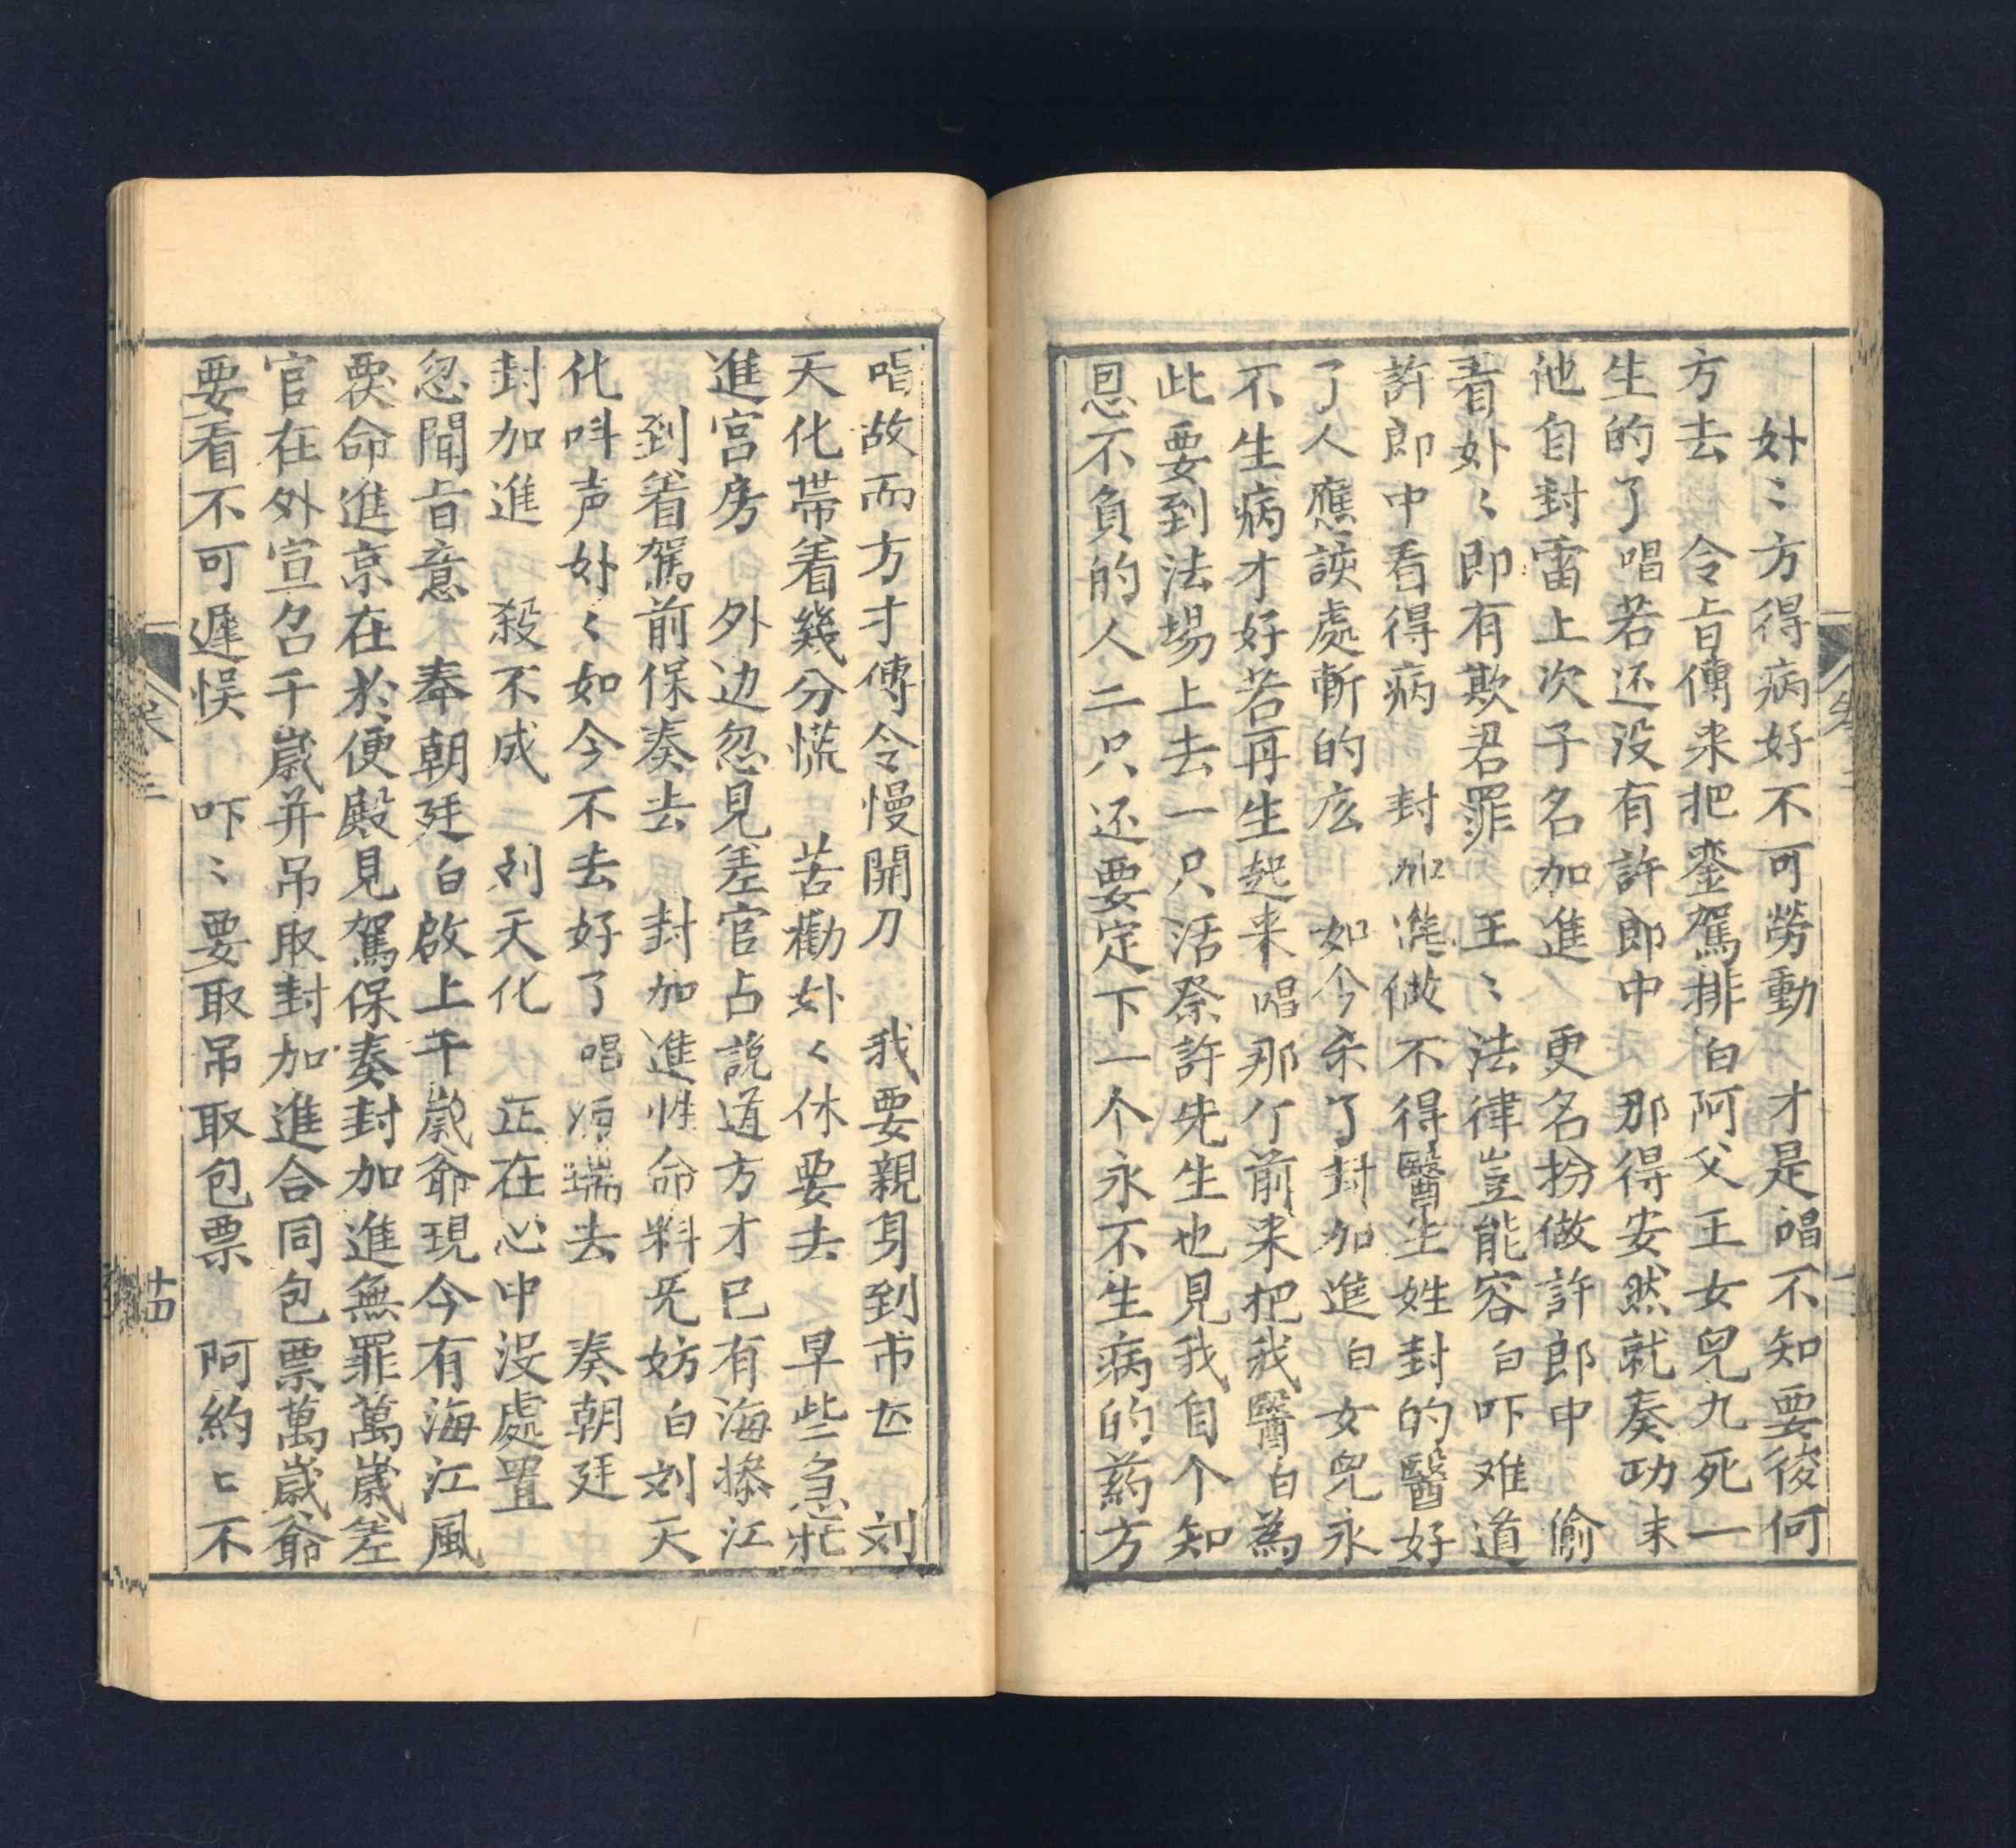 妚〻方得病好不可勞動　才是唱不知要後何
方去　令㫖傳来把銮駕排白阿父王女兒九死一
生的了唱若还没有許郎中　那得安然就奏功末
他自封雷上次子名加進　更名扮做許郎中　偷
看妚〻即有欺君罪　王〻法律豈能容白吓难道
許郎中看得病　封加進做不得醫生姓封的醫好
了人應該處斬的庅　如今杀了封加進白女兒永
不生病才好若再生起来唱那亇前来把我醫白為
此要到法場上去一只活祭許先生也見我自个知
恩不負的人二只还要定下一个永不生病的葯方
唱故而方才傳令慢開刀　我要親身到市　刘
天化带着幾分慌　苦勸妚〻休要去　早些急
進宮房　外边忽見差官占說道方才已有海搽江
到着駕前保奏去　封加進性命料旡妨白刘天
化呌声妚〻如今不去好了唱　去　奏朝廷
封加進　殺不成　刘天化　正在心中没處置
忽聞㫖意　奉朝廷白啟上千歲爺現今有海江風
命進京在於便殿見駕保奏封加進無罪萬歲差
官在外宣召千歲并吊取封加進合同包票萬歲爺
要看不可遲悮　吓〻要取吊取包票　阿約〻不
卷三
十四